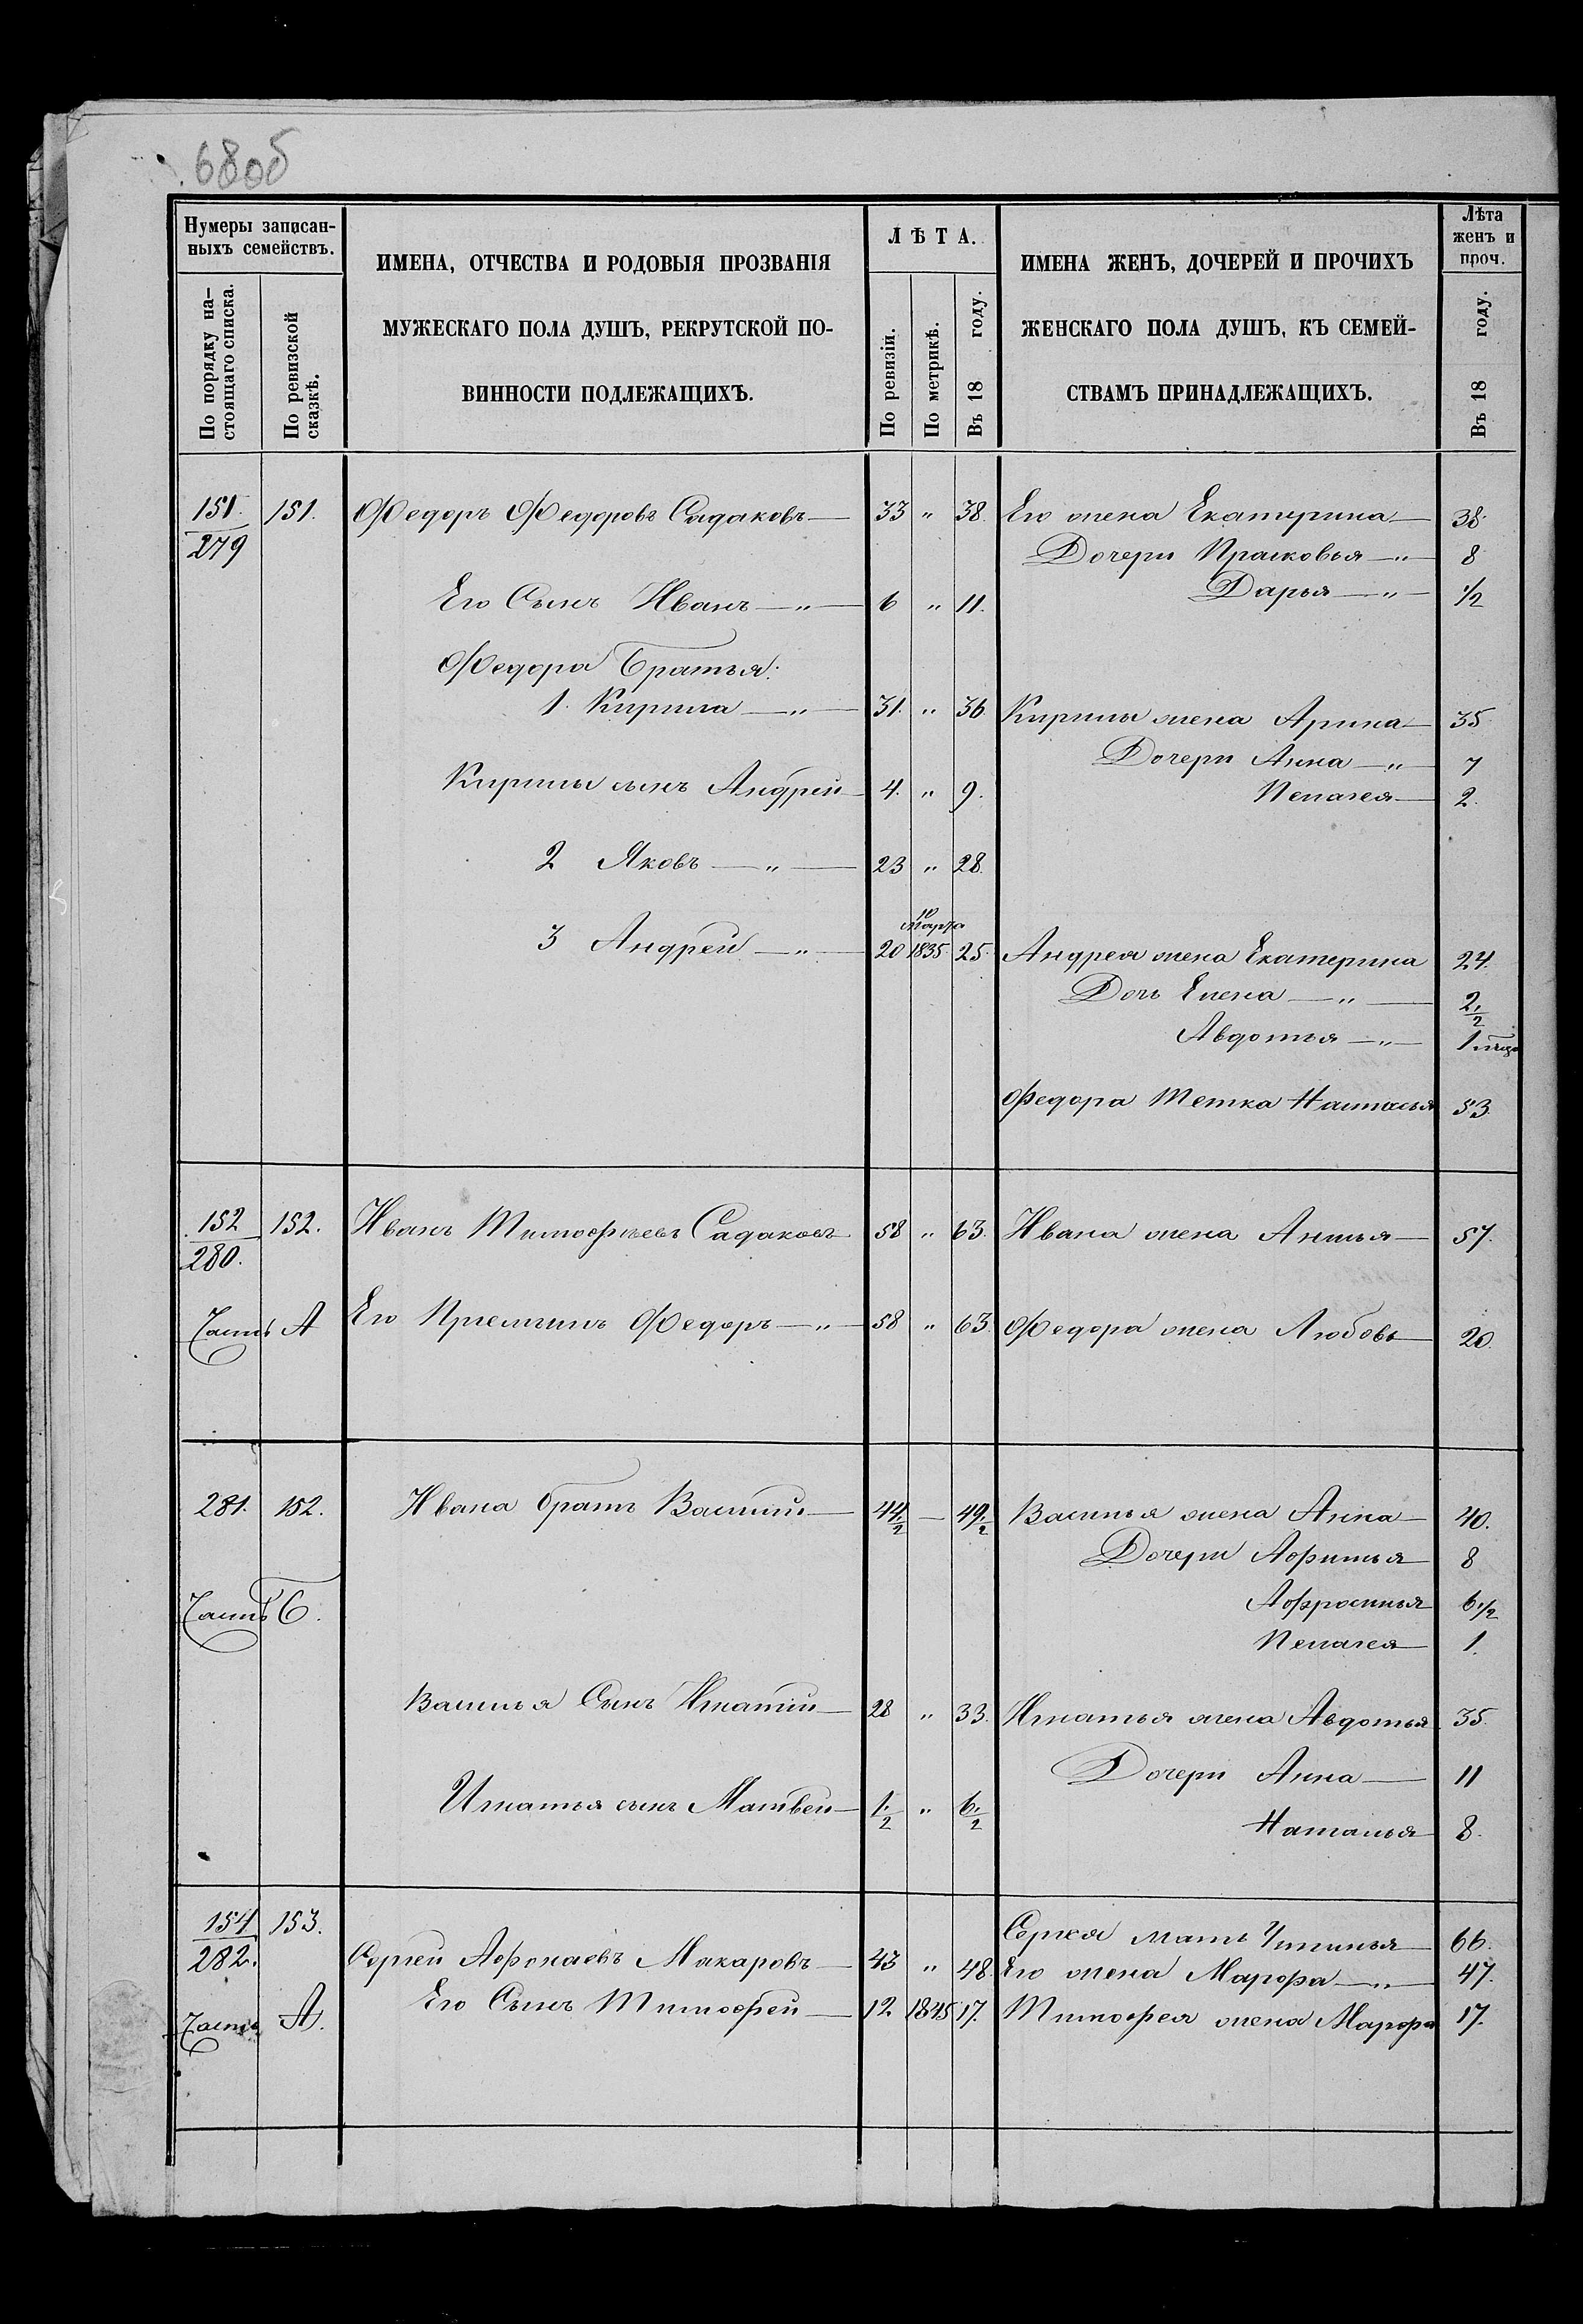 68об
Нумеры записан-
ныхъ семействъ.
По порядку на-
стоящаго списка.
По ревизской
сказкѣ.
ИМЕНА, ОТЧЕСТВА И РОДОВЫЯ ПРОЗВАНІЯ
МУЖЕСКАГО ПОЛА ДУШЪ, РЕКРУТСКОЙ ПО-
ВИННОСТИ ПОДЛЕЖАЩИХЪ.
ЛѢТА.
По ревизіи.
По метрикѣ.
Въ 18 году.
ИМЕНА ЖЕНЪ, ДОЧЕРЕЙ И ПРОЧИХЪ
ЖЕНСКАГО ПОЛА ДУШЪ, КЪ СЕМЕЙ-
СТВАМЪ ПРИНАДЛЕЖАЩИХЪ.
Лѣта
женъ и
проч.
Въ 18 году.
151. 151. Федоръ Федоровъ Садаковъ — 33 " 38. Его жена Екатерина — 38.
279 Дочери Прасковья — " — 8
Его Сынъ Иванъ — " — 6 " 11. Дарья — " — 1/2
Федора Братья:
1. Кирила — " — 31. " 36 Кирилы жена Арина — 35
Дочери Анна — " — 7
Кирилы сынъ Андрей — 4. " 9. Пелагея — 2.
2 Яковъ — " — 23 " 28.
10
марта
3 Андрей — " — 20 1835 25. Андрея жена Екатерина 24.
Дочь Елена — " — 2 1/2
Авдотья — " — 1
Федора Тетка Настасья 53.
152 152. Иванъ Тимофѣевъ Садаковъ 58 " 63. Ивана жена 57.
280.
Часть А Его Федоръ — " — 58 " 63. Федора жена Любовь — 20.
281. 152. Ивана братъ Василій — 44 1/2 — 49 1/2 Василья жена Анна — 40.
Дочери 8
Часть Б. Афросинья 6 1/2
Пелагея — 1.
Василья Сынъ Игнатій — 28 " 33. Игнатья жена Авдотья 35.
Дочери Анна — 11
Игнатья сынъ Матвей — 1/2 " 6 1/2
Наталья 8.
154 153. Сергея мать — 66.
282. Сергей Афонасьевъ Макаровъ — 43 " 48. Его жена Марфа — " — 47.
Часть А. Его Сынъ Тимофей — 12 1845 17. Тимофея жена Марфа 17.